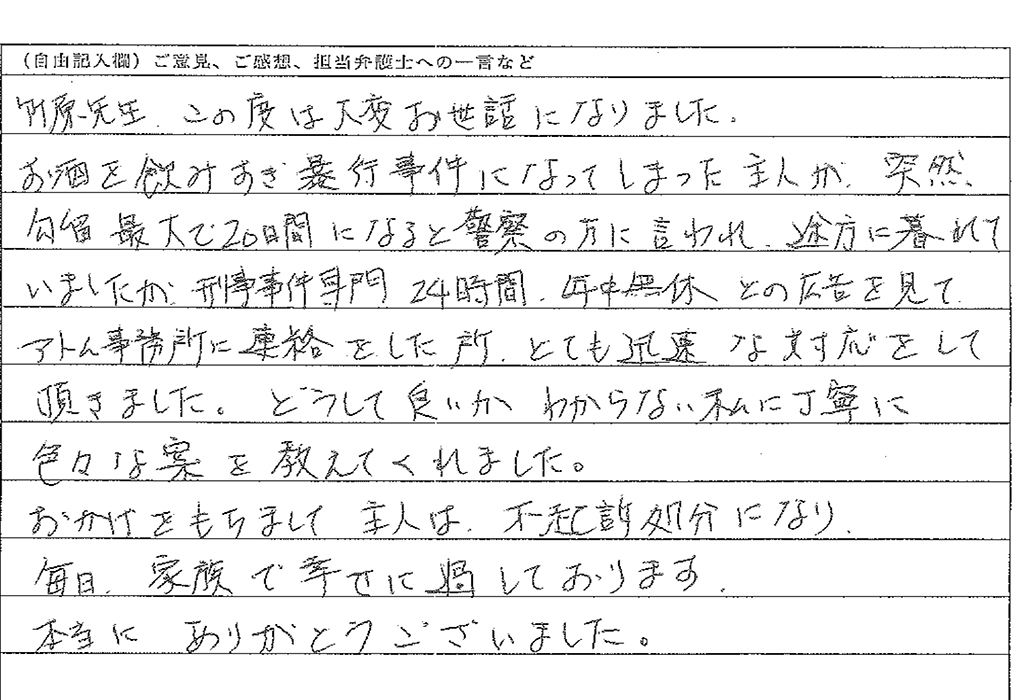 (自由記入欄)ご意見、ご感想、担当弁護士への一言など
竹原先生、この度は大変お世話になりました。
お酒を飲みすぎ暴行事件になってしまった主人が、突然、
勾留最大で20日間になると警察の方に言われ、途方に暮れて
いましたが、刑事事件専門、24時間、年中無休との広告を見て、
アトム事務所に連絡をした所、とても迅速な対応をして
頂きました。どうして良いかわからない私に丁寧に
色々な案を教えてくれました。
おかげをもちまして主人は、不起訴処分になり、
毎日、家族で幸せに過しております。
本当にありがとうございました。